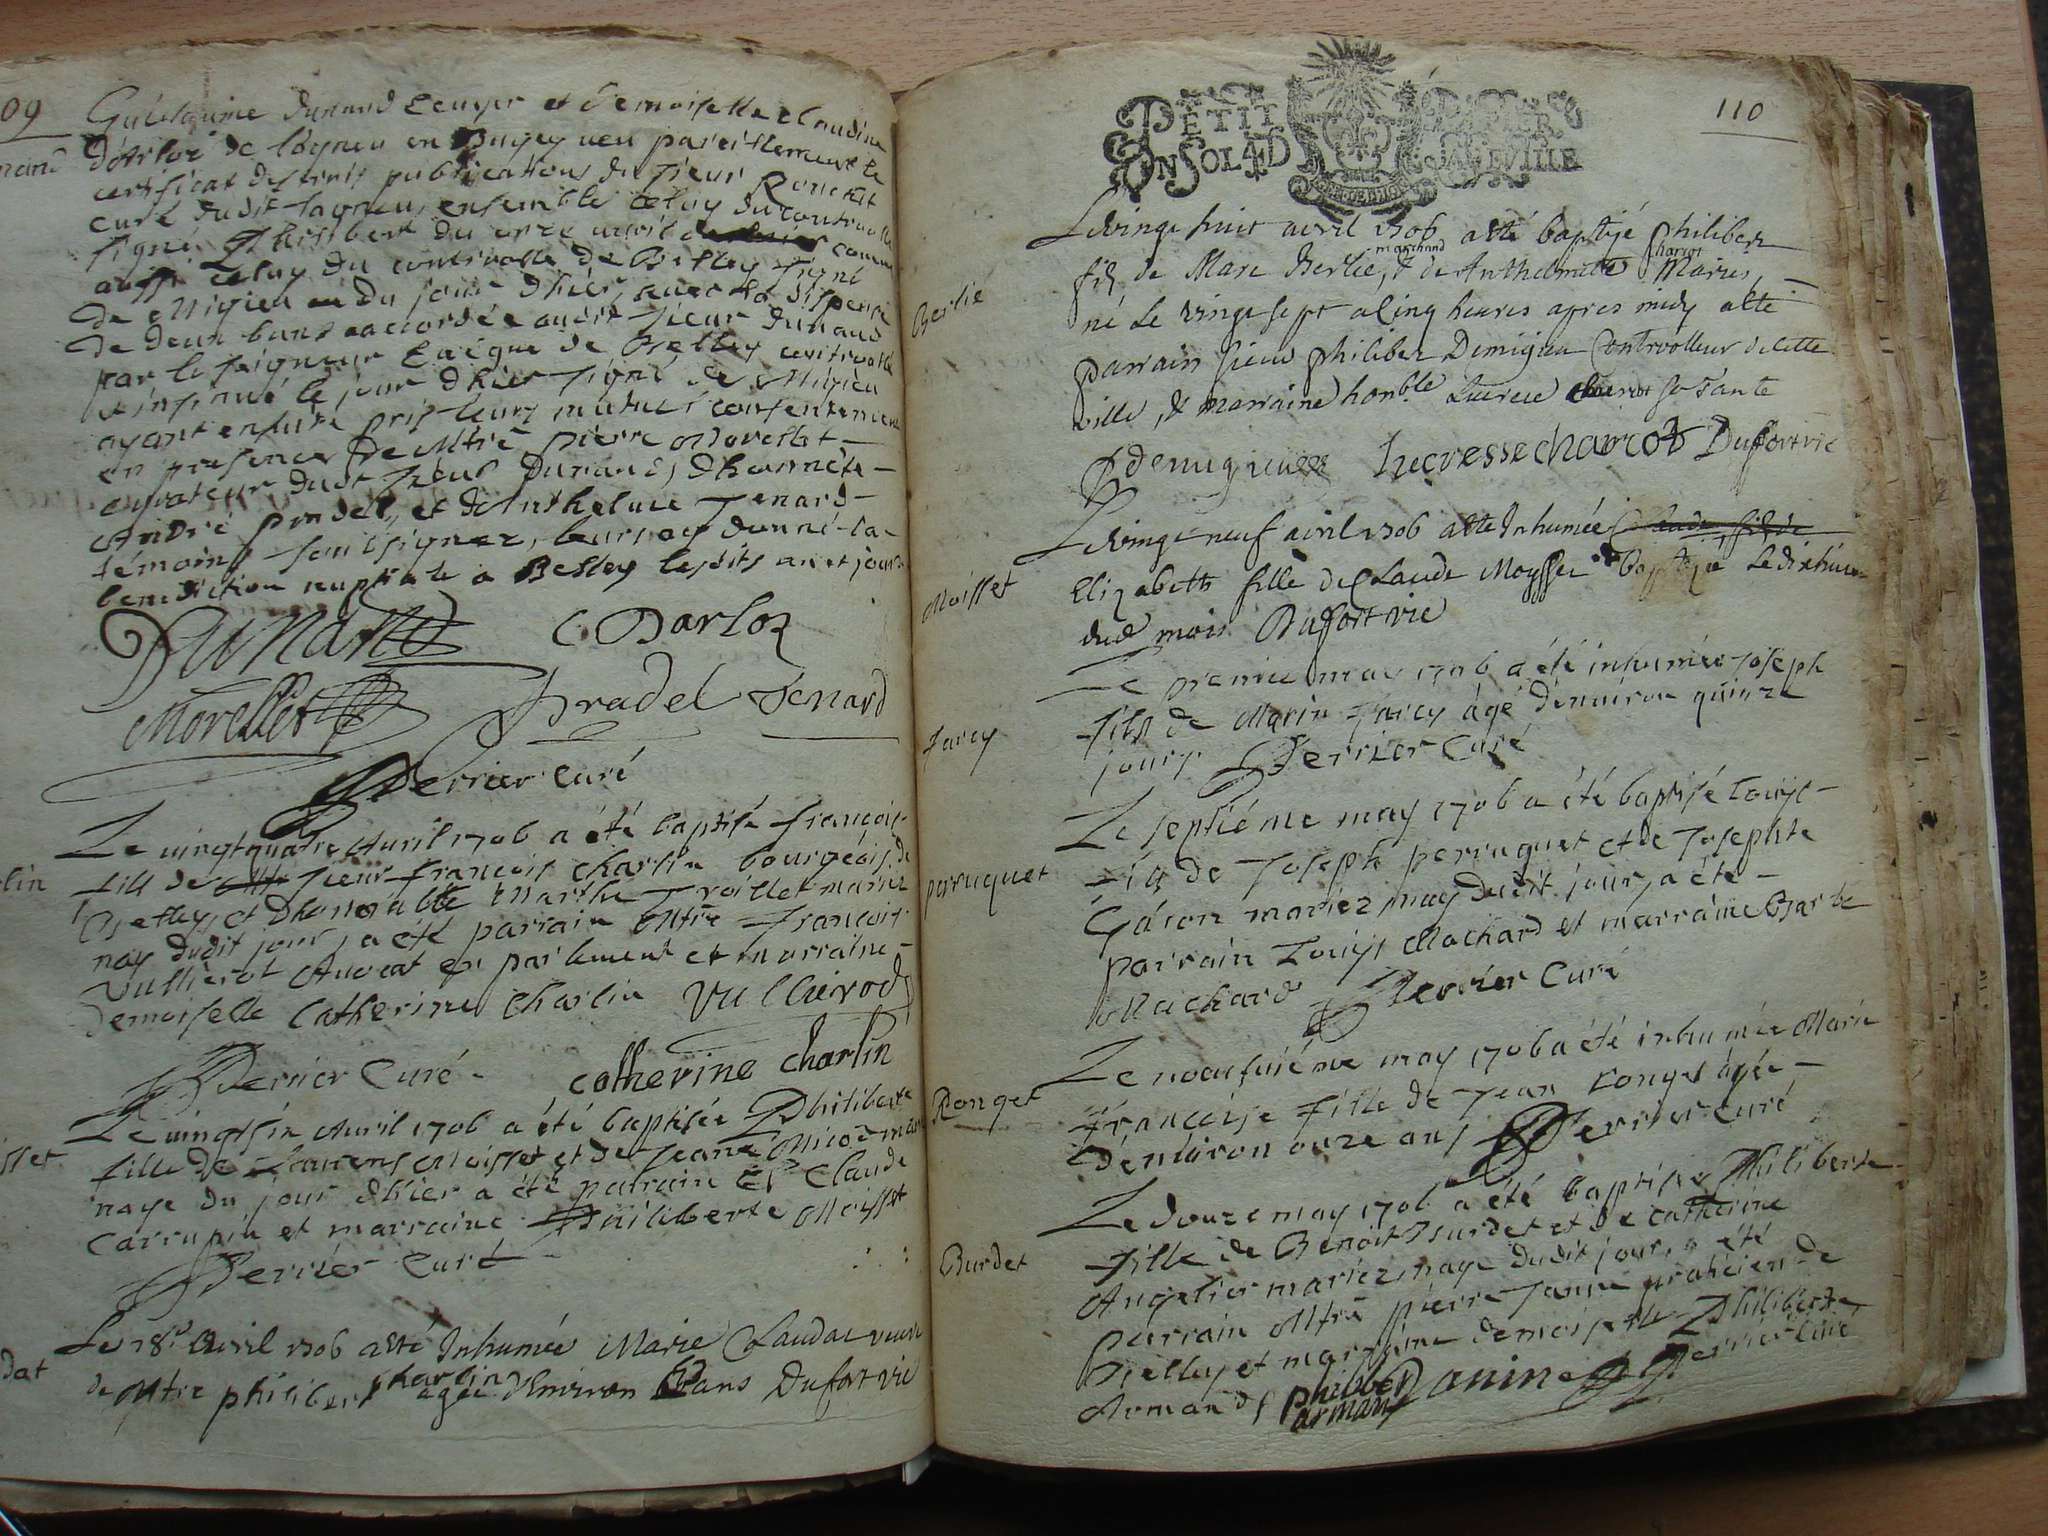 09
Guillaume Dunand Ecuyer et Demoiselle Claudine
D'Arloz de lagneu en Bugey veu pareillement le
certificat des trois publications du sieur
curé dudit lagneu, ensemble celuy du controolle
signé Philibert du onze avril comme
aussi celuy du controolle de Belley signé
De Migieu du jour d'hier, avec la dispence
de deux bans accordée audit sieur Dunand
par le seigneur Evêque de Belley controollé
et insinué le jour d'hier signé de Migieu
ayant ensuite pris leurs mutuel consentement
en presence de Mtre pierre Morellet
curateur dudt sieur Dunand, d'honnête
André pradel, et d'Anthelme Tenard
témoins soubsignez, leurs ay donné la
benediction nuptiale a Belley lesdits an et jour
Dunand C Darloz
Morellet Pradel Tenard
Perrier Curé
Le vingtquatre Avril 1706 a été baptisé françois
fils de sieur françois Charlin bourgeois de
Belley, et d'honorable Marthe Troillet mariez
nay dudit jour, a été parrain Mtre françois
Vullierot Avocat en parlement et marraine
Demoiselle Catherine Charlin Vullierod
Perrier Curé catherine charlin
Le vingtsix Avril 1706 a été baptisée Philiberte
fille de Laurens Moisset et de Jeane
naye du jour d'hier a été parrain Sr Claude
Carrupin et marraine Philiberte Moysset
Perrier Curé
Le 28e Avril 1706 a esté Inhumée Marie Claudat veuve
de Mtre philibert charlin agée d'Environ ans Dufort vic
110
PETIT PAPIER
UN SOL 4 D LA FEVILLE
Berlie
Le vingt huit avril 1706 a esté baptizé Philibert
fils de Marc Berlie, marchand & de Anthelmette Charcot Mariés,
né le vingt sept a Cinq heures apres midy a esté
parrain sieur philibert Demigieu Controolleur de cette
ville, & marraine honble Lucrece charcot sa Tante
P demigieu lucresse charcot Dufort vic
Moisset
Le vingt neuf avril 1706 a esté Inhumée
Elizabeth fille de Claude Moysset baptizé le dixhuit
dud mois Dufort vic
Farcy
Le premier may 1706 a été inhumée Joseph
fils de Marin Farcy âgé d'environ quinze
jours Perrier Curé
perruquet
Le septiéme may 1706 a été baptisé Louys
fils de Joseph perruquet et de Josephte
Gáron mariez nay dudit jour, a été
parrain Louys Machard et marraine Barbe
Machard Perrier Curé
Ronget
Le neufuiéme may 1706 a été inhumée Marie
Françoise fille de Jean Ronget âgée
d'environ onze ans Perrier Curé
Burdet
Le douze may 1706 a été baptisée Philiberte
fille de Benoit Burdet et de Catherine
Angelier mariez, naye dudit jour, a été
parrain Mtre pierre Janin praticien de
Belley et marraine demoiselle Philiberte
Armand philiber Janin Perrier Curé
arman